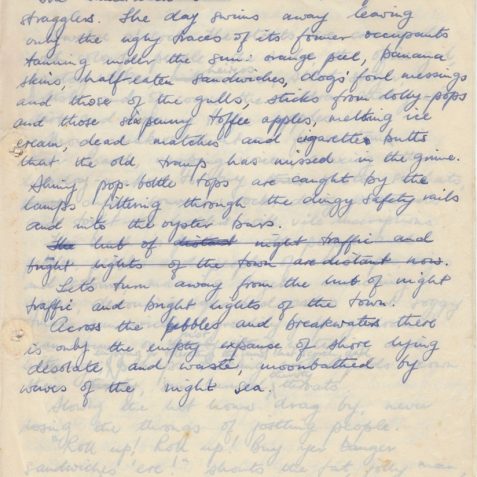 stragglers. The day swims away leaving
only the ugly traces of its former occupants
tanning under the sun: orange peel, banana
skins, half-eaten sandwiches, dogs' foul messings
and those of the gulls, sticks from lolly-pops
and those sixpenny toffee apples, melting ice
cream, dead matches and cigarette butts
that the old tramp has missed in the grime.
Shiny pop-bottle tops are caught by the
lamps flitting through the dingy safety rails
and into the oyster bars.
The hub of distant night traffic and
bright lights of the town are distant now.
Let's turn away from the hub of night
traffic and bright lights of the town!
Across the pebbles and breakwaters there
is only the empty expanse of shore lying
desolate and waste, moonbathed by
waves of the night sea.